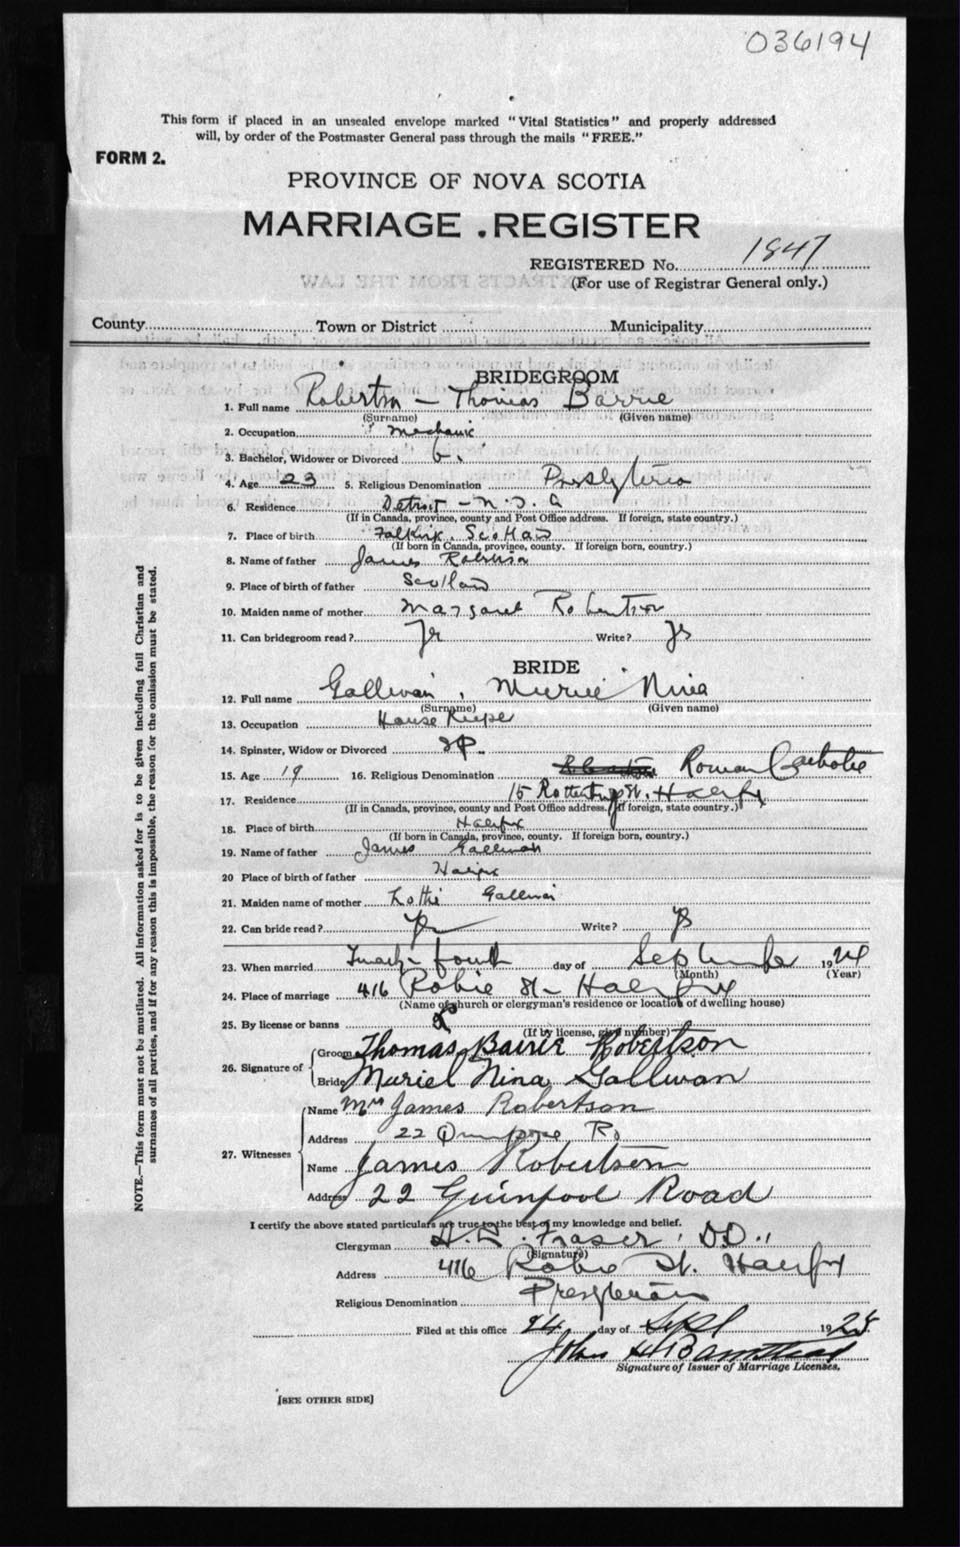 036194
This form if placed in an unsealed envelope marked "Vital Statistics" and properly addressed
will, by order of the Postmaster General pass through the mails "FREE."
FORM 2.
PROVINCE OF NOVA SCOTIA
MARRIAGE REGISTER
REGISTERED No. 1847
(For use of Registrar General only.)
County Town or District Municipality
BRIDEGROOM
1. Full name Robertson - Thomas Barrie
(Surname) (Given name)
2. Occupation Mechanic
3. Bachelor, Widower or Divorced
4. Age 23 5. Religious Denomination Presbyterian
6. Residence Detroit - U.S.A
(If in Canada, province, county and Post Office address. If foreign, state country.)
7. Place of birth Falkirk, Scotland
(If born in Canada, province, county. If foreign born, country.)
8. Name of father James Robertson
9. Place of birth of father Scotland
10. Maiden name of mother Margaret Robertson
11. Can bridegroom read? Write?
BRIDE
12. Full name Galliwan, Muriel Nina
(Surname) (Given name)
13. Occupation House Keeper
14. Spinster, Widow or Divorced Sp.
15. Age 19 16. Religious Denomination Roman Catholic
17. Residence 15 St. Halifax
(If in Canada, province, county and Post Office address. If foreign, state country.)
18. Place of birth Halifax
(If born in Canada, province, county. If foreign born, country.)
19. Name of father James Galliwan
20 Place of birth of father Halifax
21. Maiden name of mother Lottie Galliwan
22. Can bride read? Write?
23. When married Twenty-fourth day of September 19
(Month) (Year)
24. Place of marriage 416 Robie St - Halifax
(Name of church or clergyman's residence or location of dwelling house)
25. By license or banns
(If by license, give number)
26. Signature of Groom Thomas Barrie Robertson
Bride Muriel Nina Galliwan
27. Witnesses Name Mrs James Robertson
Address 22 Quinpool Rd
Name James Robertson
Address 22 Quinpool Road
I certify the above stated particulars are true to the best of my knowledge and belief.
Clergyman Fraser, D.D.
(Signature)
Address 416 Robie St. Halifax
Religious Denomination Presbyterian
Filed at this office 24 day of Sept 19
John H Barnstead
Signature of Issuer of Marriage Licenses.
[SEE OTHER SIDE]
NOTE.—This form must not be mutilated. All information asked for is to be given including full Christian and
surnames of all parties, and if for any reason this is impossible, the reason for the omission must be stated.